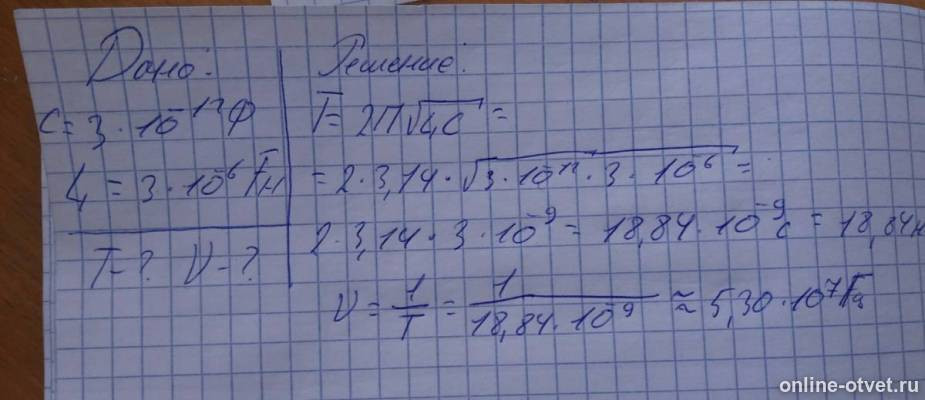 Дано:
C = 3 · 10⁻¹² Ф
L = 3 · 10⁻⁶ Гн
T - ? ν - ?
Решение:
T = 2π√LC =
= 2 · 3,14 · √3 · 10⁻¹² · 3 · 10⁻⁶ =
2 · 3,14 · 3 · 10⁻⁹ = 18,84 · 10⁻⁹ с = 18,84н
ν = 1/T = 1/18,84 · 10⁻⁹ ≈ 5,30 · 10⁷ Гц
online-otvet.ru